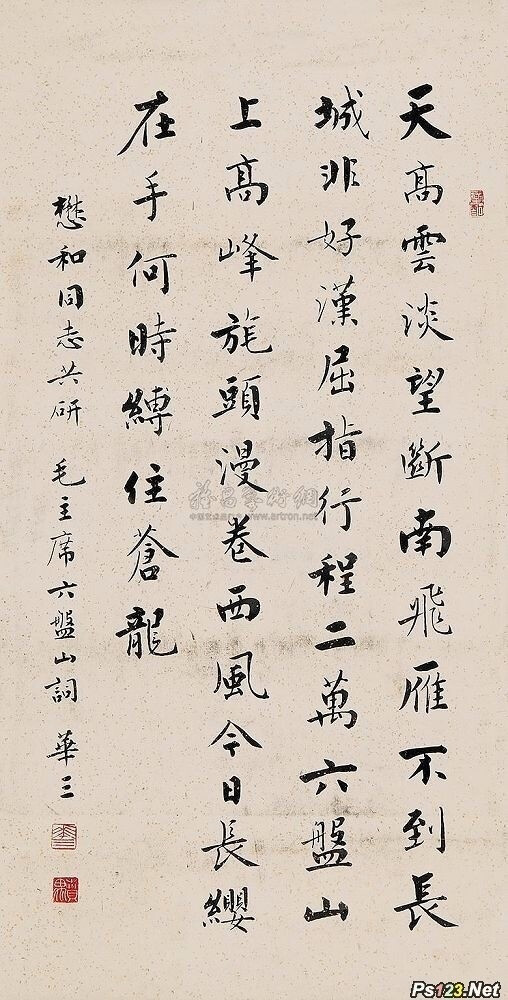 天高雲淡望斷南飛雁不到長
城非好漢屈指行程二萬六盤山
上高峰旄頭漫卷西風今日長纓
在手何時縛住蒼龍
懋和同志共研 毛主席六盤山詞 華三
www.artron.net
Ps123.Net